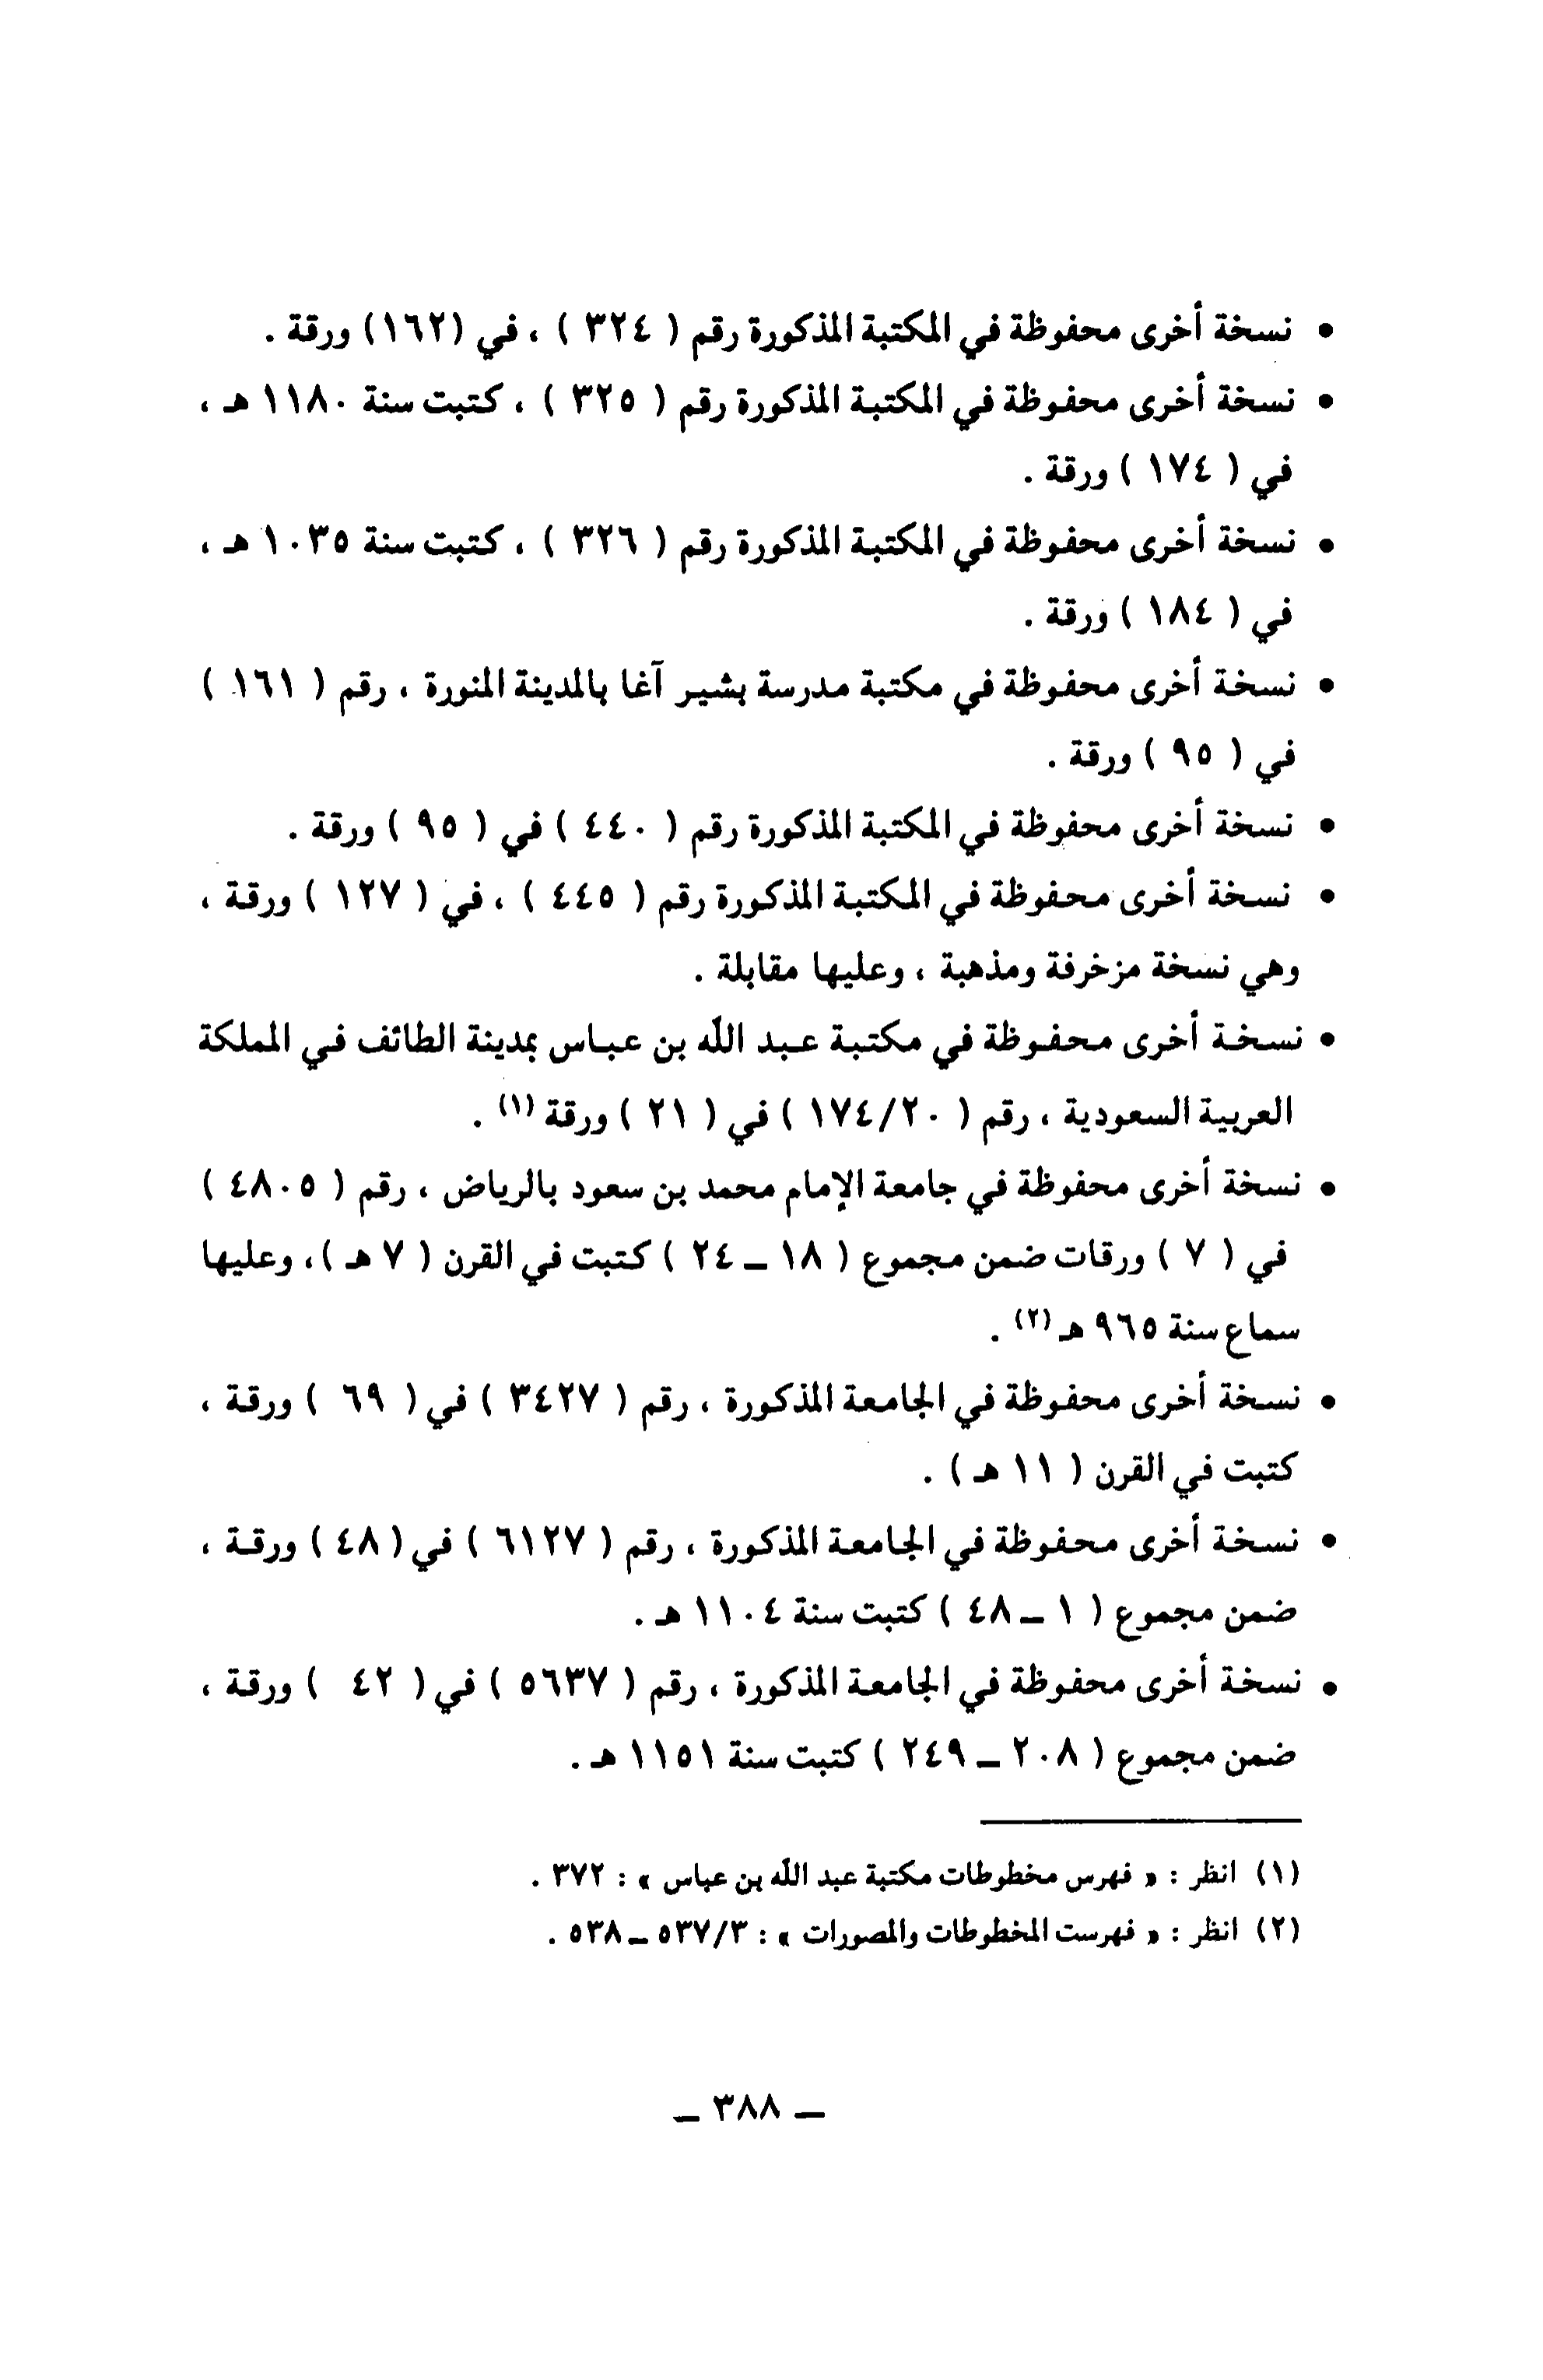 • نسخة أخرى محفوظة في المكتبة المذكورة رقم ( ٣٢٤ ) ، في (١٦٢) ورقة .
• نسخة أخرى محفوظة في المكتبة المذكورة رقم ( ٣٢٥ ) ، كتبت سنة ١١٨٠ هـ ،
في ( ١٧٤ ) ورقة .
• نسخة أخرى محفوظة في المكتبة المذكورة رقم ( ٣٢٦ ) ، كتبت سنة ١٠٣٥ هـ ،
في ( ١٨٤ ) ورقة .
• نسخة أخرى محفوظة في مكتبة مدرسة بشير آغا بالمدينة المنورة ، رقم ( ١٦١ )
في ( ٩٥ ) ورقة .
• نسخة أخرى محفوظة في المكتبة المذكورة رقم ( ٤٤٠ ) في ( ٩٥ ) ورقة .
• نسخة أخرى محفوظة في المكتبة المذكورة رقم ( ٤٤٥ ) ، في ( ١٢٧ ) ورقة ،
وهي نسخة مزخرفة ومذهبة ، وعليها مقابلة .
• نسخة أخرى محفوظة في مكتبة عبد الله بن عباس بمدينة الطائف في المملكة
العربية السعودية ، رقم ( ١٧٤/٢٠ ) في ( ٢١ ) ورقة (١) .
• نسخة أخرى محفوظة في جامعة الإمام محمد بن سعود بالرياض ، رقم ( ٤٨٠٥ )
في ( ٧ ) ورقات ضمن مجموع ( ١٨ ــ ٢٤ ) كتبت في القرن ( ٧ هـ ) ، وعليها
سماع سنة ٩٦٥ هـ (٢) .
• نسخة أخرى محفوظة في الجامعة المذكورة ، رقم ( ٣٤٢٧ ) في ( ٦٩ ) ورقة ،
كتبت في القرن ( ١١ هـ ) .
• نسخة أخرى محفوظة في الجامعة المذكورة ، رقم ( ٦١٢٧ ) في ( ٤٨ ) ورقة ،
ضمن مجموع ( ١ ــ ٤٨ ) كتبت سنة ١١٠٤ هـ .
• نسخة أخرى محفوظة في الجامعة المذكورة ، رقم ( ٥٦٣٧ ) في ( ٤٢ ) ورقة ،
ضمن مجموع ( ٢٠٨ ــ ٢٤٩ ) كتبت سنة ١١٥١ هـ .
(١) انظر : « فهرس مخطوطات مكتبة عبد الله بن عباس » : ٣٧٢ .
(٢) انظر : « فهرست المخطوطات والمصورات » : ٥٣٧/٣ ــ ٥٣٨ .
ــ ٣٨٨ ــ